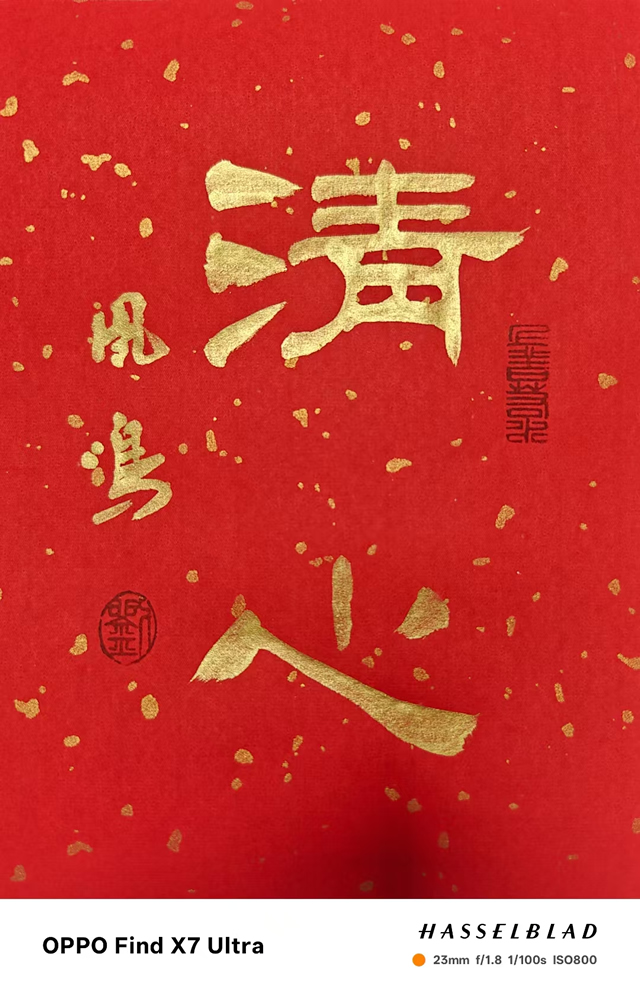 上善若水
清心
風鳴
劉
OPPO Find X7 Ultra
HASSELBLAD
23mm f/1.8 1/100s ISO800